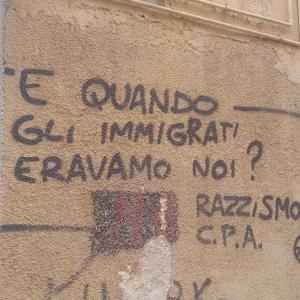 E QUANDO
GLI IMMIGRATI
ERAVAMO NOI?
RAZZISMO
C.P.A.